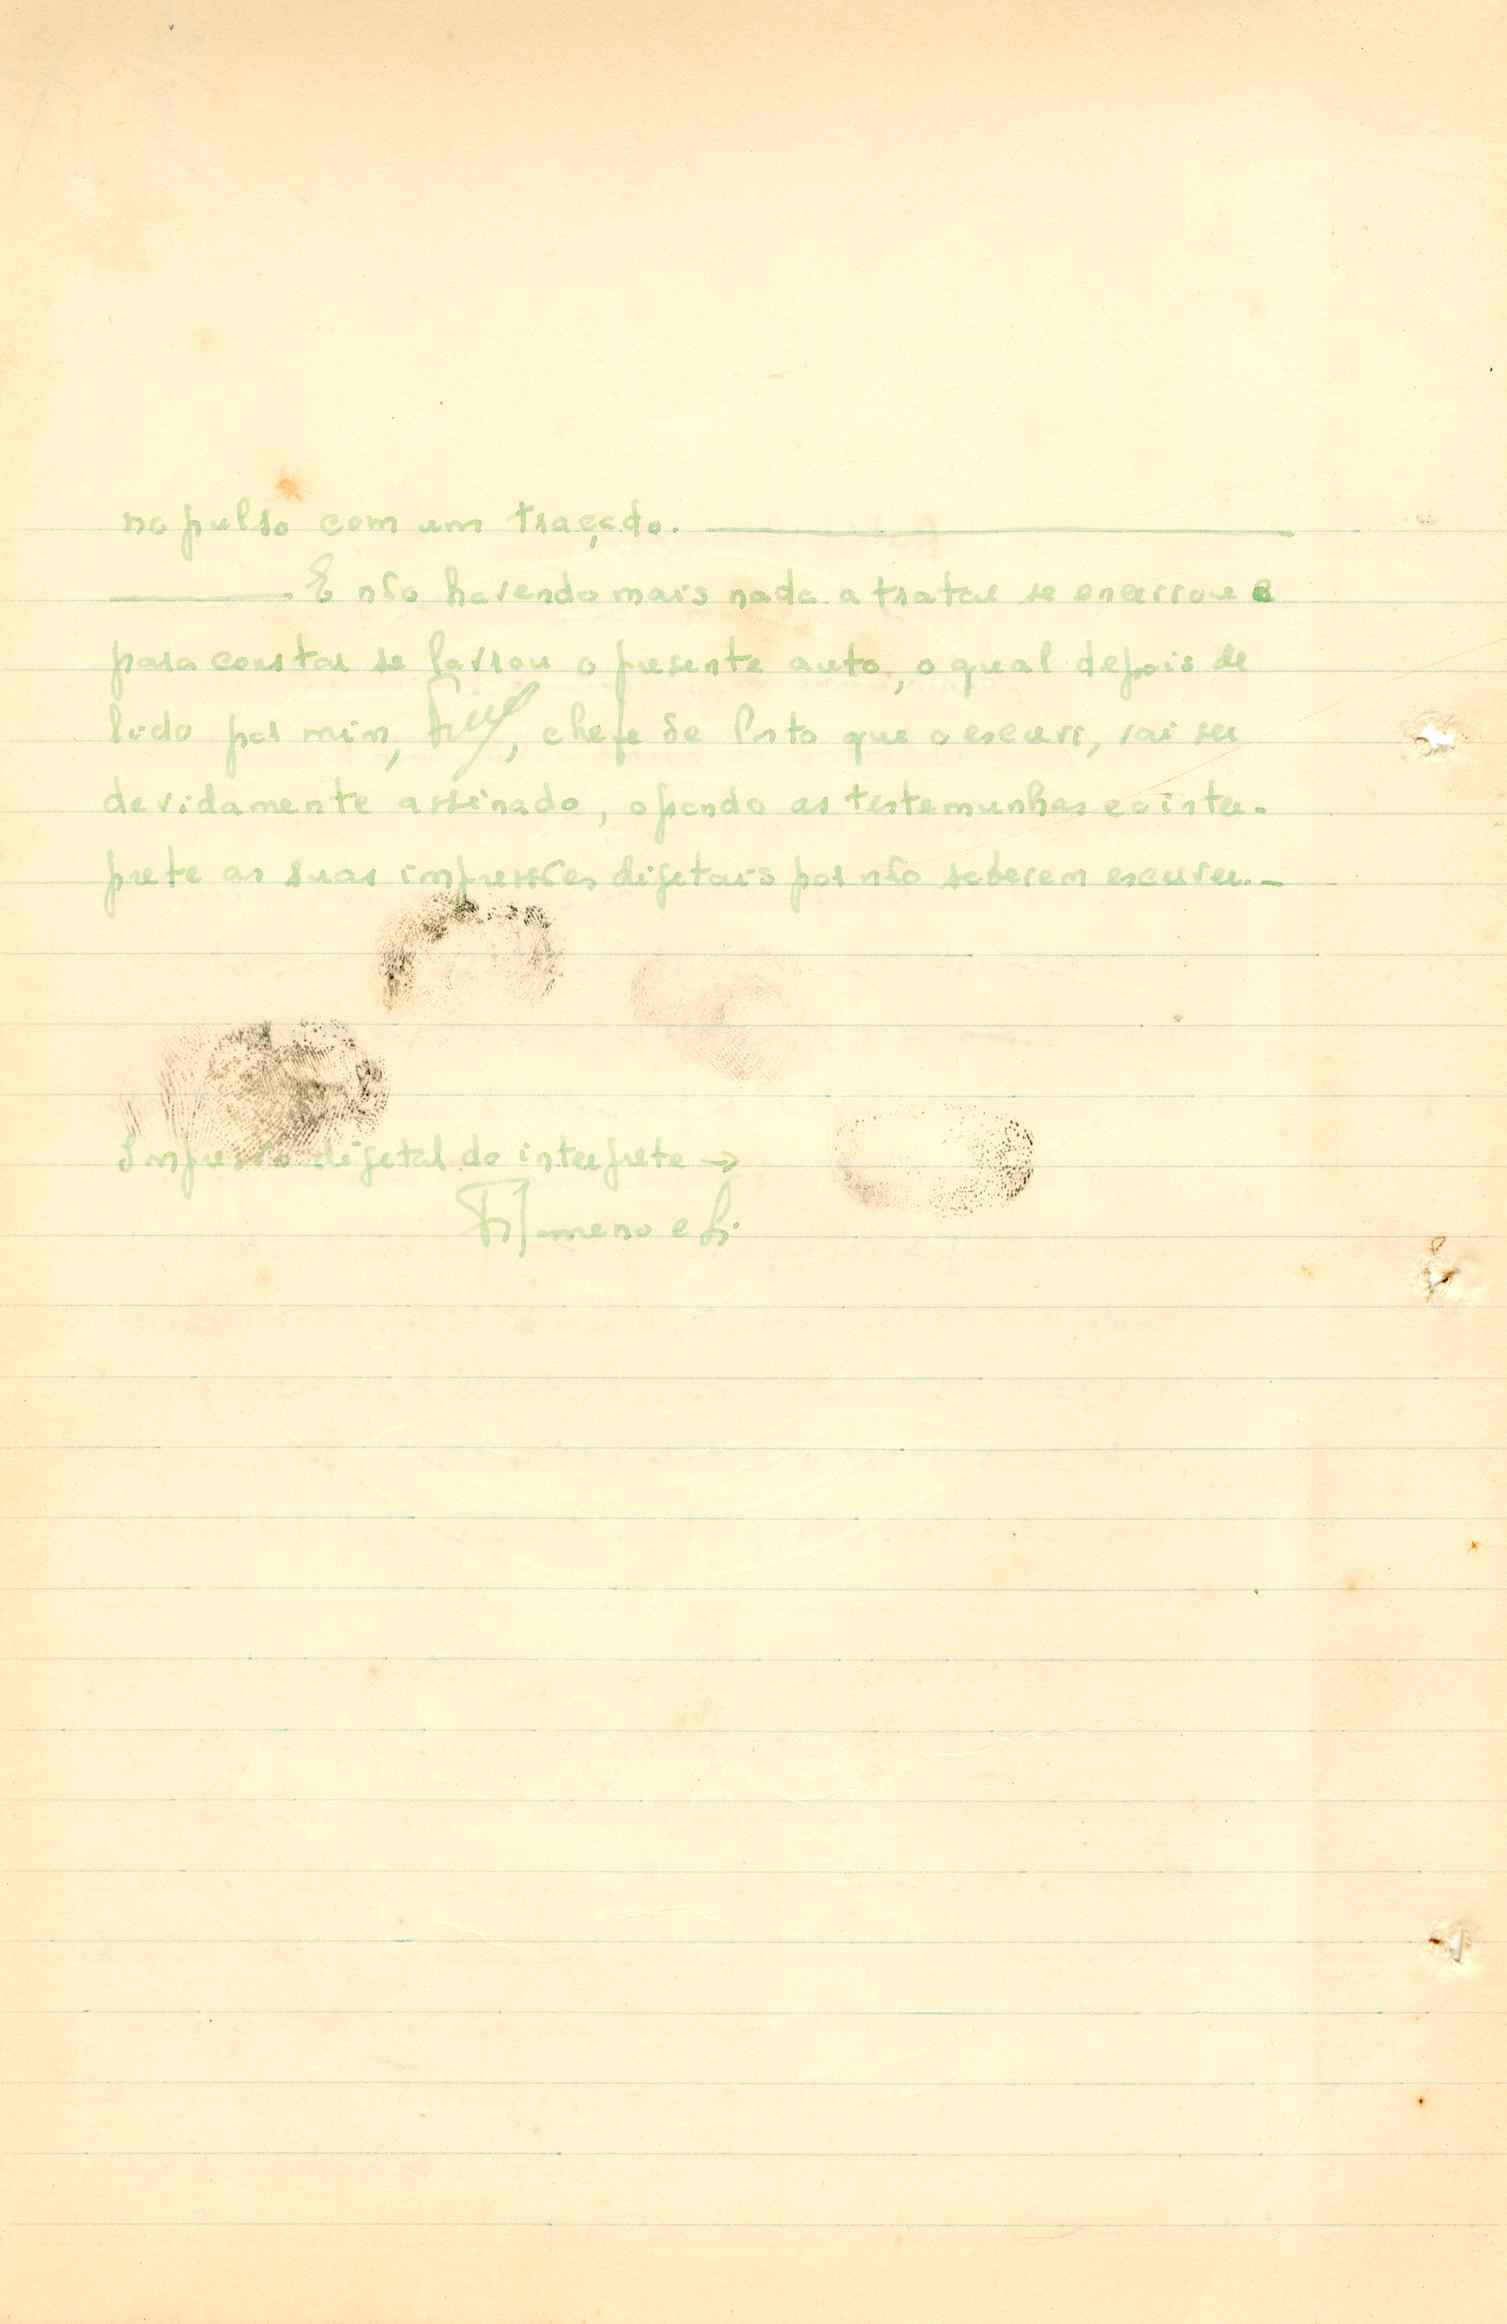 no pulso com um traçado.
E não havendo mais nada a tratar se encerrou e
para constar se lavrou o presente auto, o qual depois de
lido por mim, , chefe de Posto que o escrevi, vai ser
devidamente assinado, apondo as testemunhas e o inter-
prete as suas impressões digitais por não saberem escrever.-
Impressão digital do interprete →